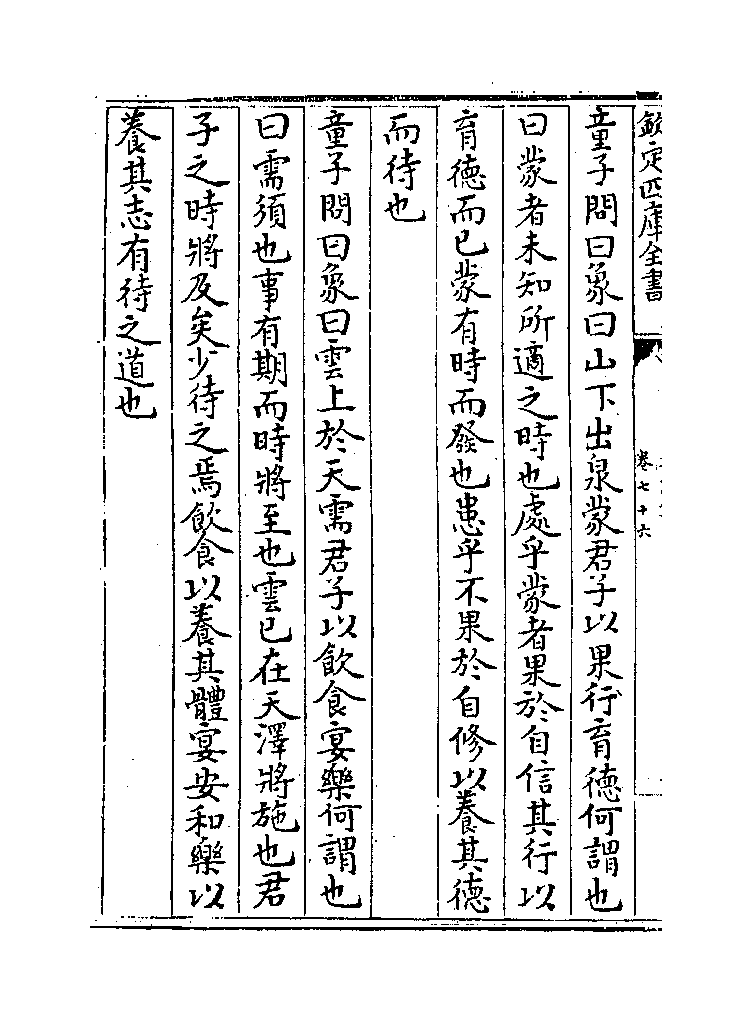 欽定四庫全書
卷七十六
童子問曰象曰山下出泉蒙君子以果行育德何謂也
曰蒙者未知所適之時也處乎蒙者果於自信其行以
育德而已蒙有時而發也患乎不果於自修以養其德
而待也
童子問曰象曰雲上於天需君子以飲食宴樂何謂也
曰需須也事有期而時將至也雲已在天澤將施也君
子之時將及矣少待之焉飲食以養其體宴安和樂以
養其志有待之道也